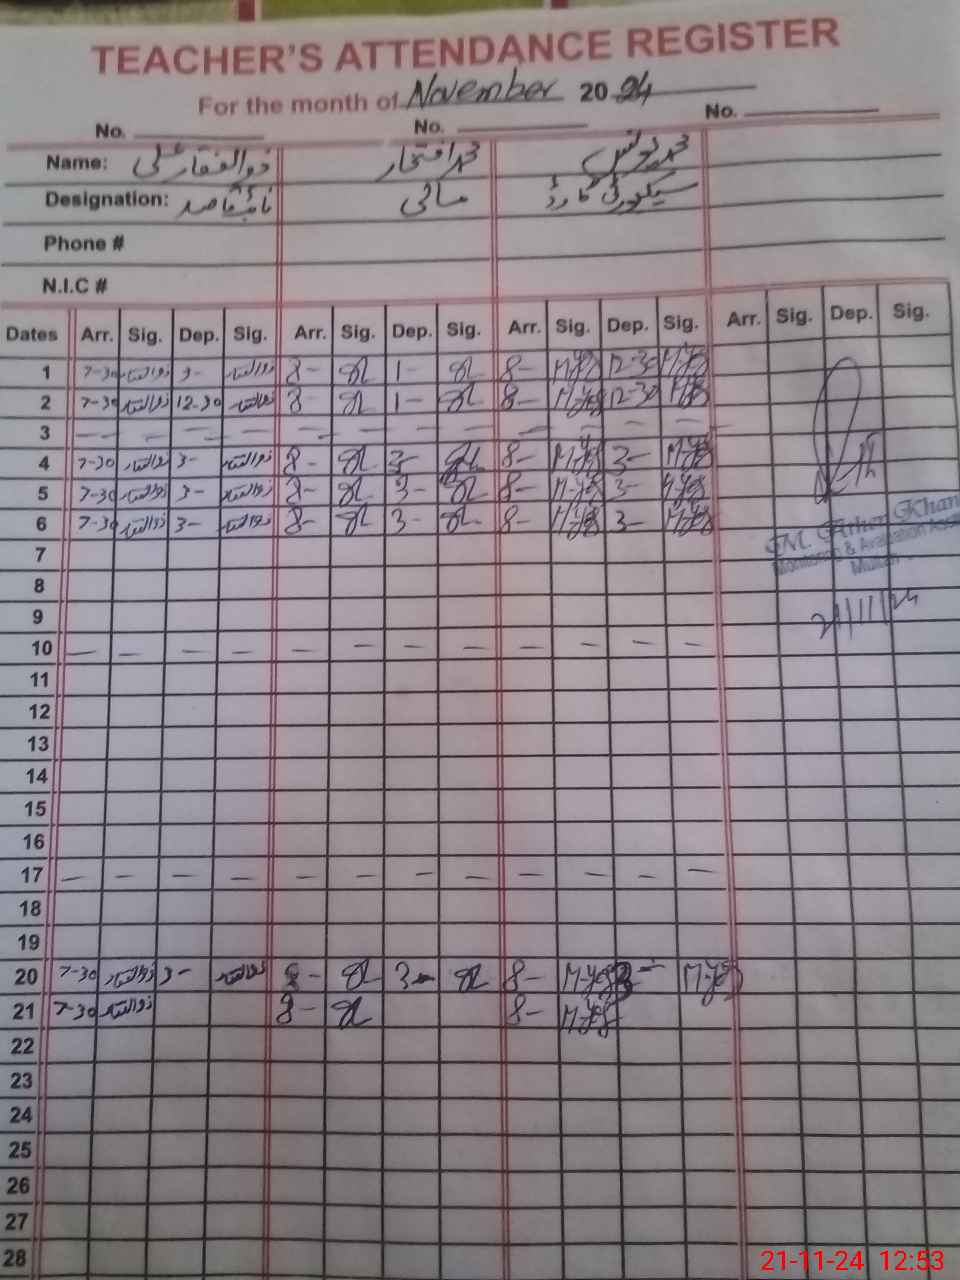 TEACHER'S ATTENDANCE REGISTER
For the month of November 2024
No. No. No.
Name: ذوالفقار علی محمد افتخار محمد یونس
Designation: نائب قاصد مالی سیکورٹی گارڈ
Phone #
N.I.C #
Dates Arr. Sig. Dep. Sig. Arr. Sig. Dep. Sig. Arr. Sig. Dep. Sig. Arr. Sig. Dep. Sig.
1 7-30 ذوالفقار 3- ذوالفقار 8- 1- 8- 12-30
2 7-30 ذوالفقار 12-30 ذوالفقار 8- 1- 8- 12-30
3 — — — — — — — — — — — —
4 7-30 ذوالفقار 3- ذوالفقار 8- 3- 8- 3-
5 7-30 ذوالفقار 3- ذوالفقار 8- 3- 8- 3-
6 7-30 ذوالفقار 3- ذوالفقار 8- 3- 8- 3-
M. Ather Khan
Monitoring &
Multan
21/11/24
7
8
9
10 — — — — — — — — — — — —
11
12
13
14
15
16
17 — — — — — — — — — — — —
18
19
20 7-30 ذوالفقار 3- ذوالفقار 8- 3- 8- 3-
21 7-30 ذوالفقار 8- 8-
22
23
24
25
26
27
28
21-11-24 12:53